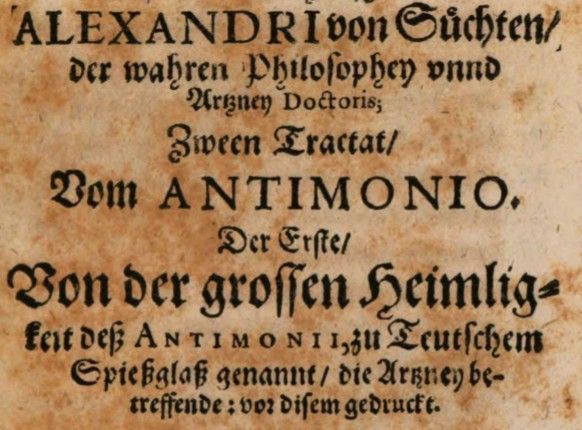 ALEXANDRI von Süchten/
der wahren Philosophey vnnd
Artzney Doctoris;
Zween Tractat/
Vom ANTIMONIO.
Der Erste/
Von der grossen Heimlig-
keit deß ANTIMONII, zu Teutschem
Spießglaß genannt/ die Artzney be-
treffende: vor disem gedruckt.